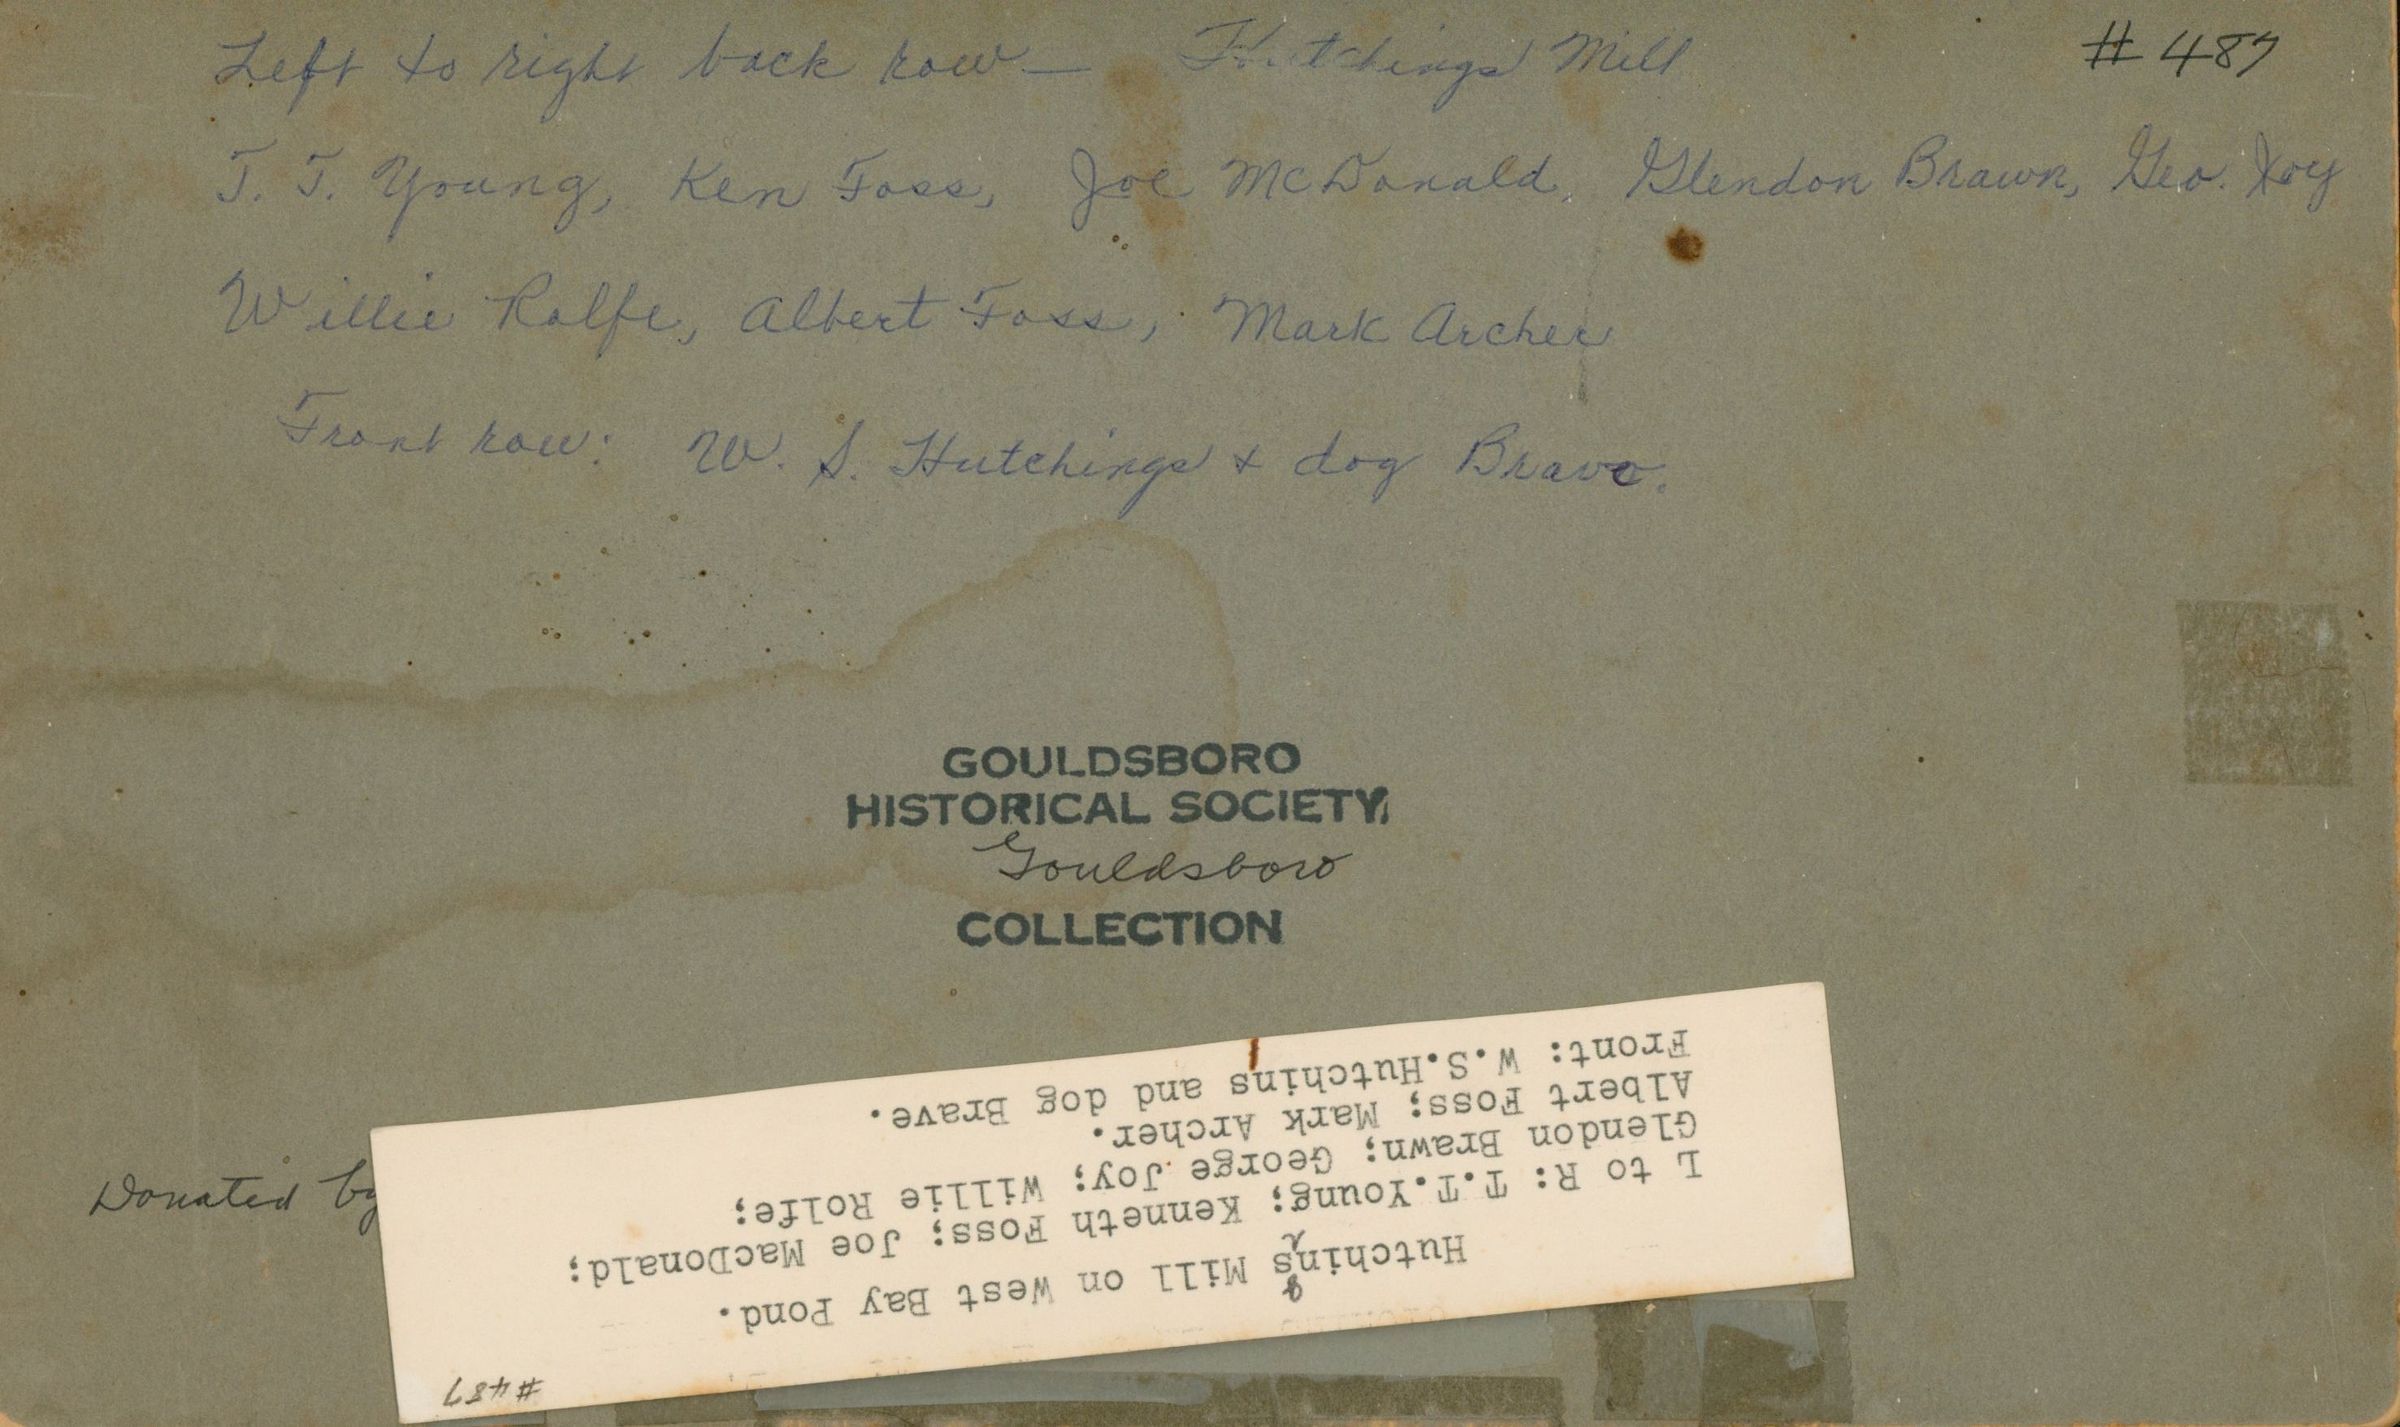 Left to right back row — Hutchings Mill
# 487
T. T. Young, Ken Foss, Joe McDonald, Glendon Brawn, Geo. Joy
Willie Rolfe, Albert Foss, Mark Archer
Front row: W. S. Hutchings + dog Brave.
GOULDSBORO
HISTORICAL SOCIETY
Gouldsboro
COLLECTION
Donated by
#487
Hutchings Mill on West Bay Pond.
L to R: T.T.Young; Kenneth Foss; Joe MacDonald;
Glendon Brawn; George Joy; Willie Rolfe;
Albert Foss; Mark Archer.
Front: W.S.Hutchins and dog Brave.